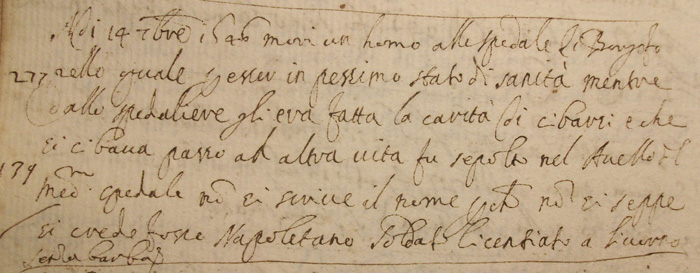 Adi 14 7bre 1646 morì un homo allo spedale di Borgo
277 nello quale p esser in pessimo stato di sanità mentre
dallo spedaliere gli era fatta la carità di cibarsi e che
si cibava passo ad altra vita fu sepolto nel Avello del
139 med.mo spedale nõ si scrive il nome p nõ si seppe
si crede fosse Napoletano soldato licentiato a Livorno
senza barba